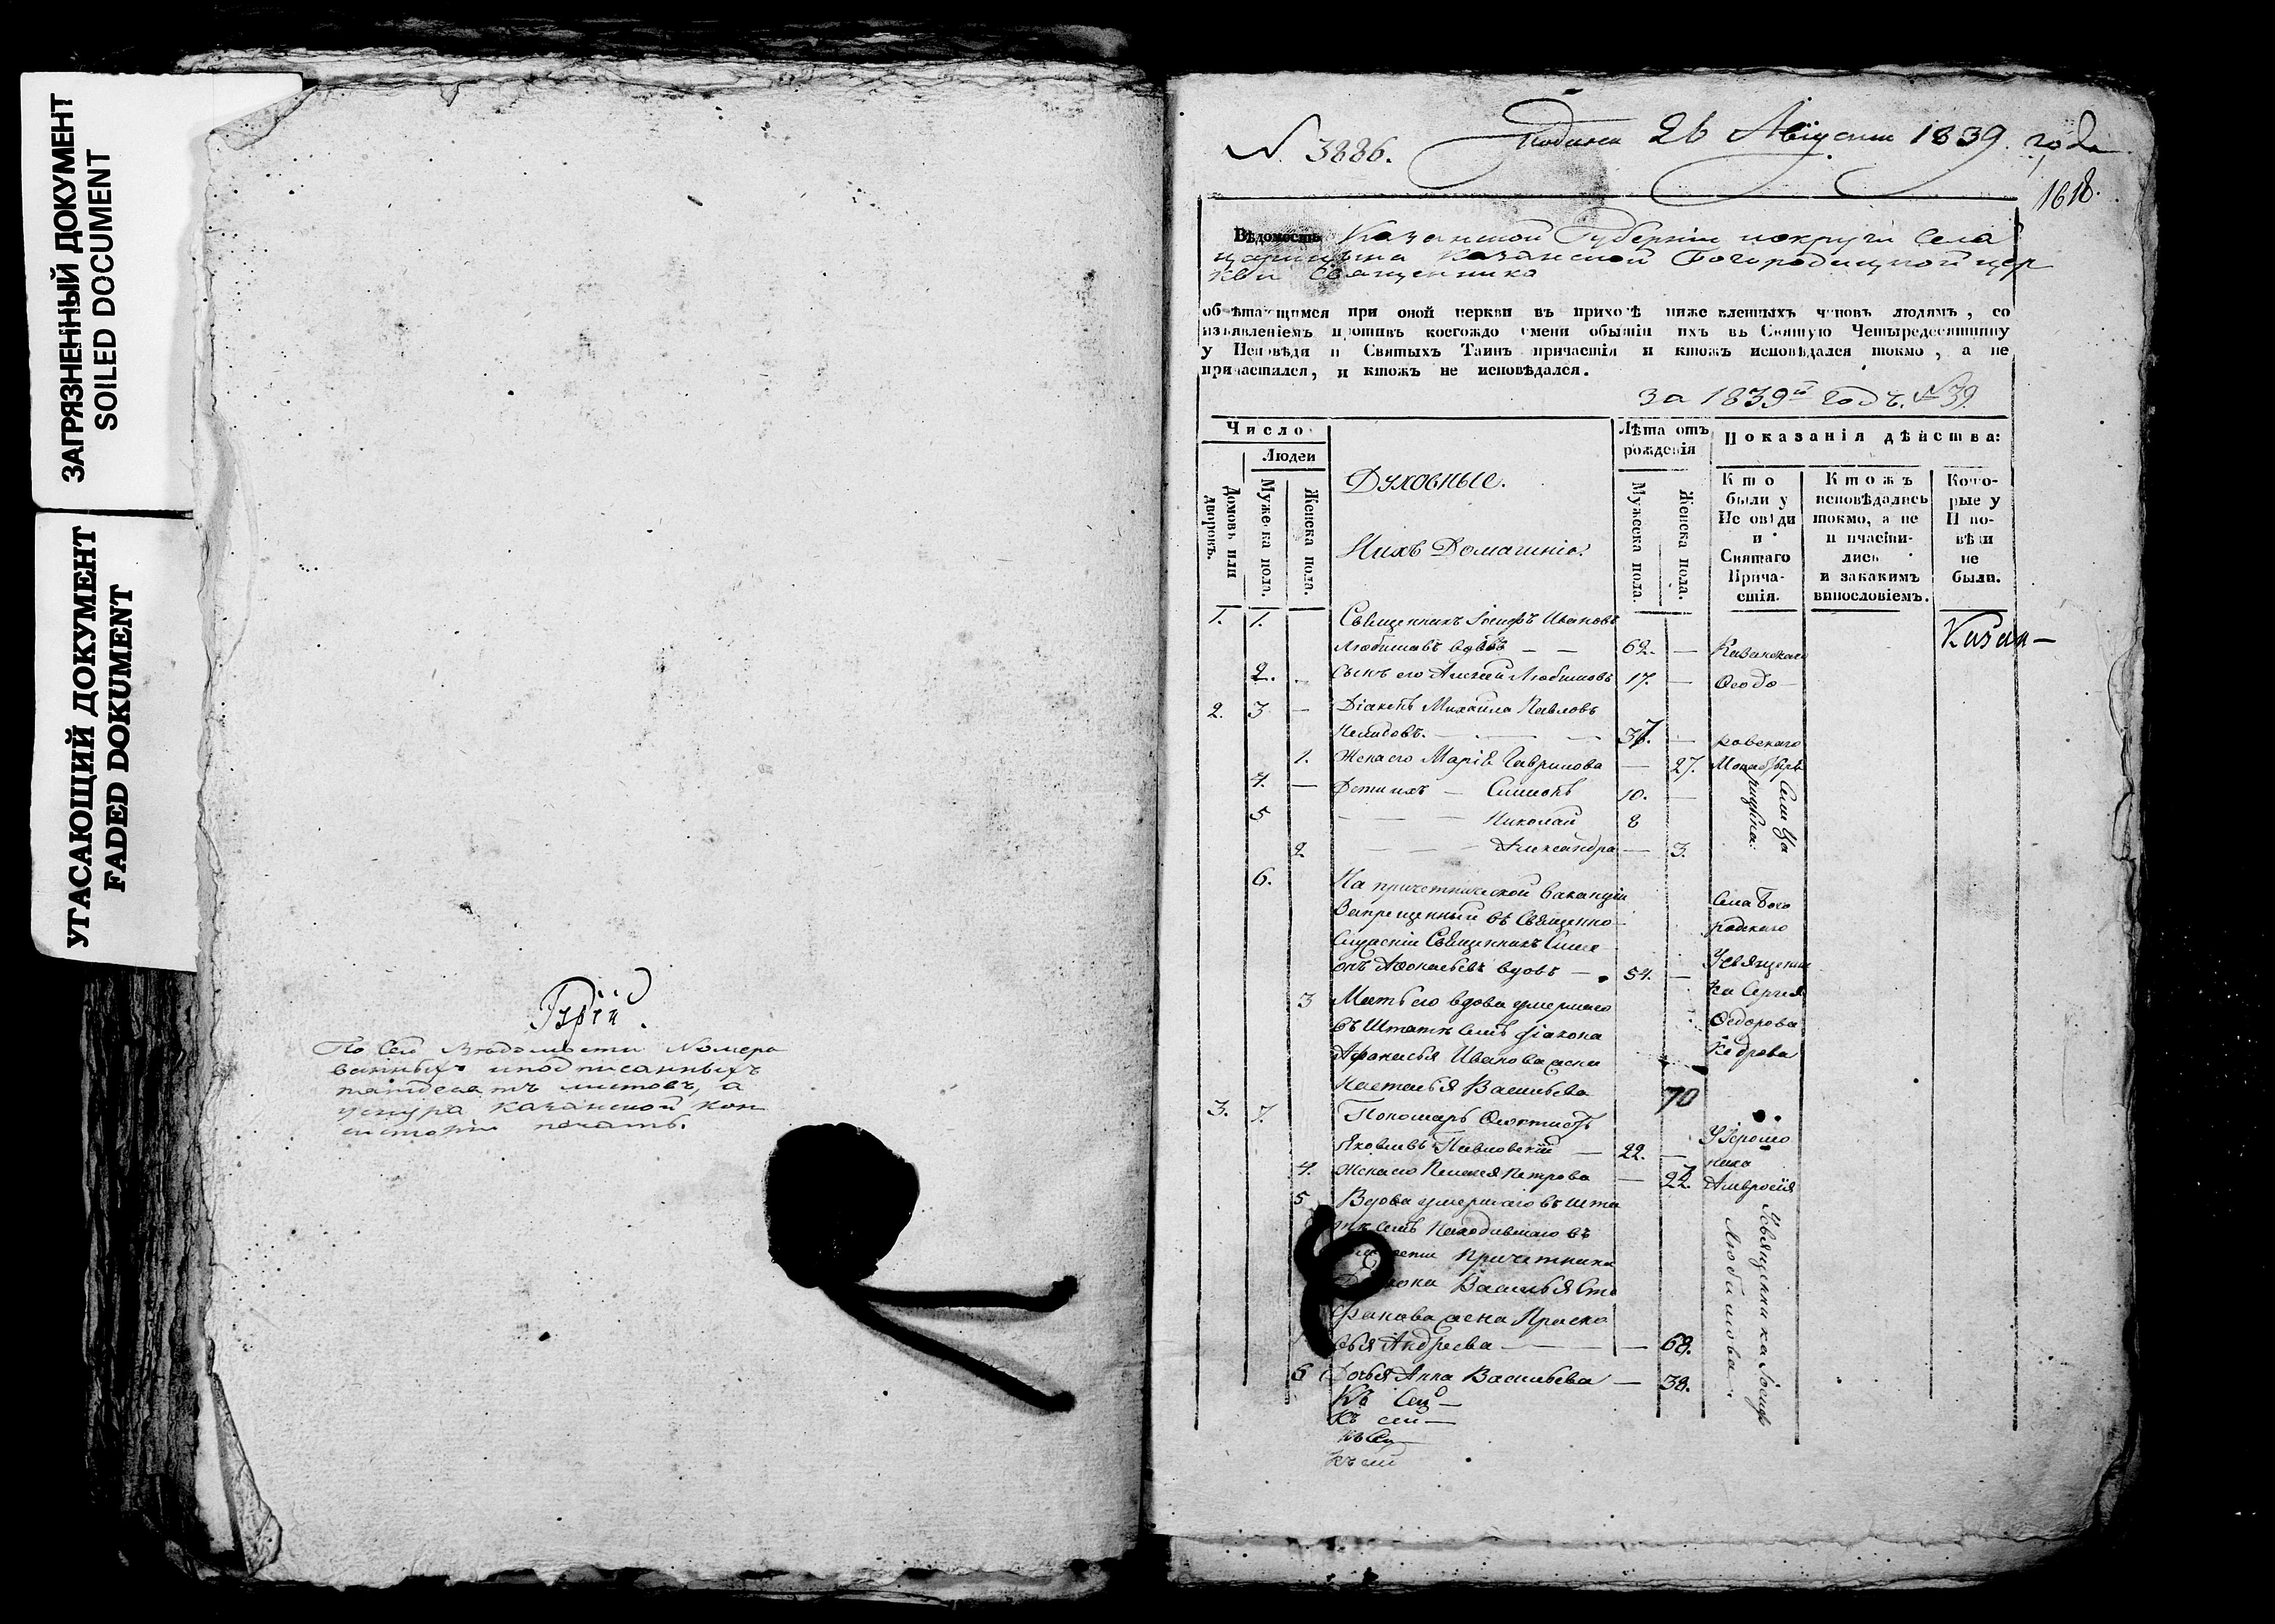 ЗАГРЯЗНЕННЫЙ ДОКУМЕНТ
SOILED DOCUMENT
УГАСАЮЩИЙ ДОКУМЕНТ
FADED DOKUMENT
По сей Ведомости Номеро
ванныхъ иподписанныхъ
листовъ, а
Казанской Кон
систоріи печать.
N. 3886.
26 Августа 1839 года
1618.
Вѣдомость Казанской Губерніи иокруги Села
Царицына Казанской Богородицкой цер
кви Священника
обрѣтающимся при оной церкви въ приходѣ нижеявленныхъ чиновъ людямъ, со
изъявленіемъ противъ коегождо имени обытіи ихъ въ Святую Четыредесятницу
у Исповѣди и Святыхъ Таинъ причастія и ктожъ исповѣдался токмо, а не
причастился, и ктожъ не исповѣдался.
за 1839й Годъ. №39.
Число
Людей
Домовъ или дворовъ.
Мужеска пола.
Женска пола.
Духовные.
Ихъ Домашніе.
Лѣта отъ рожденія
Мужеска пола.
Женска пола.
Показанія дѣйства:
Кто были у Исповѣди и Святаго Причастія.
Ктожъ исповѣдались токмо, а не причастились и закакимъ винословіемъ.
Которые у Исповѣди не были.
1. 1. Священникъ Іосифъ Ивановъ
Любимовъ вдовъ — — 62. — Казанскаго Казан—
2. Сынъ его Алексей Любимовъ 17. — Ѳеодо—
2. 3 — Діаконъ Михаила Павловъ
37. — ровскаго
1. Жена его Марія Гаврилова — 27. Монастыря
4. — Дети ихъ — Симеонъ 10. —
5 — — — Николай 8
2 — — — Александра — 3.
Села Ца
рицына:
6. На причетнической вакансіи
Запрещенный въ Священно
служеніи Священникъ Симе
онъ Аѳонасьевъ вдовъ — 54. —
Села Бого
родскаго
Усвященни
ка Сергея
Ѳедорова
Кедрова
3 Мать его вдова умершаго
въ Штатѣ семъ діакона
Афонасья Иванова жена
Настасья Васильева 70
3. 7. Пономарь Ѳеоктистъ
Яковлевъ Павловскій — 22. —
4. Жена его Пелагея Петрова — 22.
Уіеромо
наха
Амвросія
5 Вдова умершаго въ шта
тѣ семъ Находившаго въ
Причетника
Василья Сте
фанова жена Праско
вья Андреева — — 68.
6 Дочья Анна Васильева — 38.
Усвященника Іосифа
Любимова:
Къ сей —
Къ сей —
къ сей
къ сей